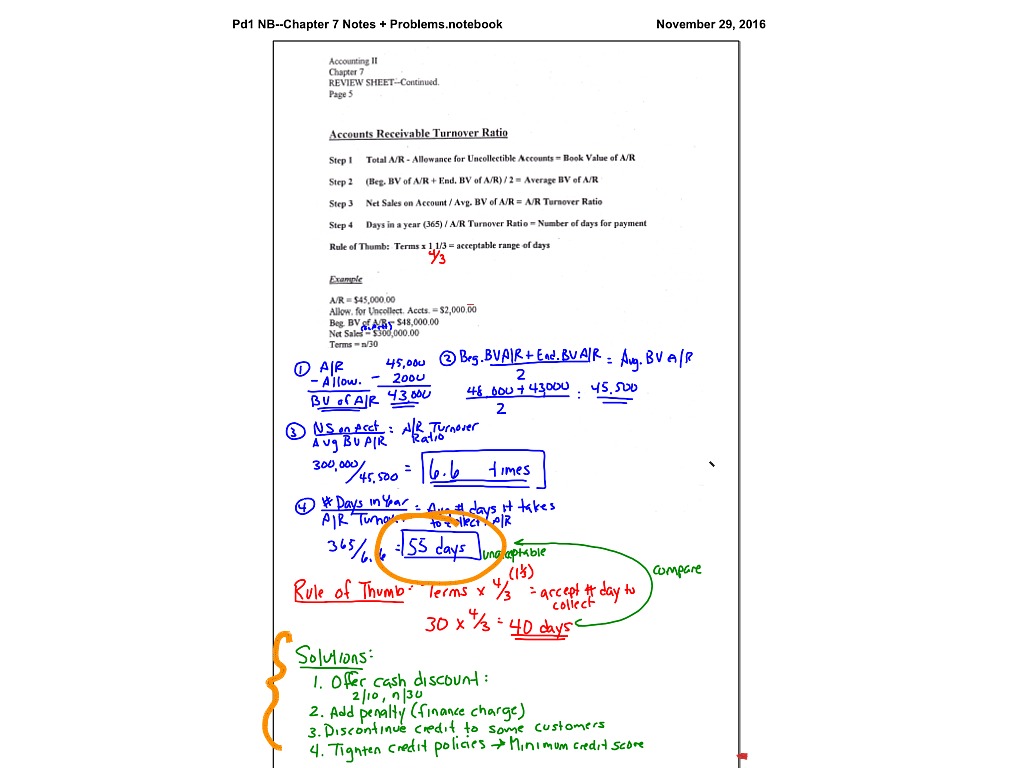 Pd1 NB--Chapter 7 Notes + Problems.notebook November 29, 2016
Accounting II
Chapter 7
REVIEW SHEET--Continued.
Page 5
Accounts Receivable Turnover Ratio
Step 1 Total A/R - Allowance for Uncollectible Accounts = Book Value of A/R
Step 2 (Beg. BV of A/R + End. BV of A/R) / 2 = Average BV of A/R
Step 3 Net Sales on Account / Avg. BV of A/R = A/R Turnover Ratio
Step 4 Days in a year (365) / A/R Turnover Ratio = Number of days for payment
Rule of Thumb: Terms x 1 1/3 = acceptable range of days
4/3
Example
A/R = $45,000.00
Allow. for Uncollect. Accts. = $2,000.00
Beg. BV of A/R = $48,000.00
Net Sales = $300,000.00
Terms = n/30
① A/R 45,000
- Allow. - 2000
BV of A/R 43,000
② Beg. BV A/R + End. BV A/R = Avg. BV A/R
2
48,000 + 43,000 = 45,500
2
③ NS on Acct = A/R Turnover
Avg BV A/R Ratio
300,000/45,500 = 6.6 times
④ # Days in Year = Avg # days it takes
A/R Turnover to collect A/R
365/6.6 = 55 days unacceptable
(1⅓)
Rule of Thumb: Terms x 4/3 = accept # day to
collect
compare
30 x 4/3 = 40 days
Solutions:
1. Offer cash discount:
2/10, n/30
2. Add penalty (finance charge)
3. Discontinue credit to some customers
4. Tighten credit policies → Minimum credit score